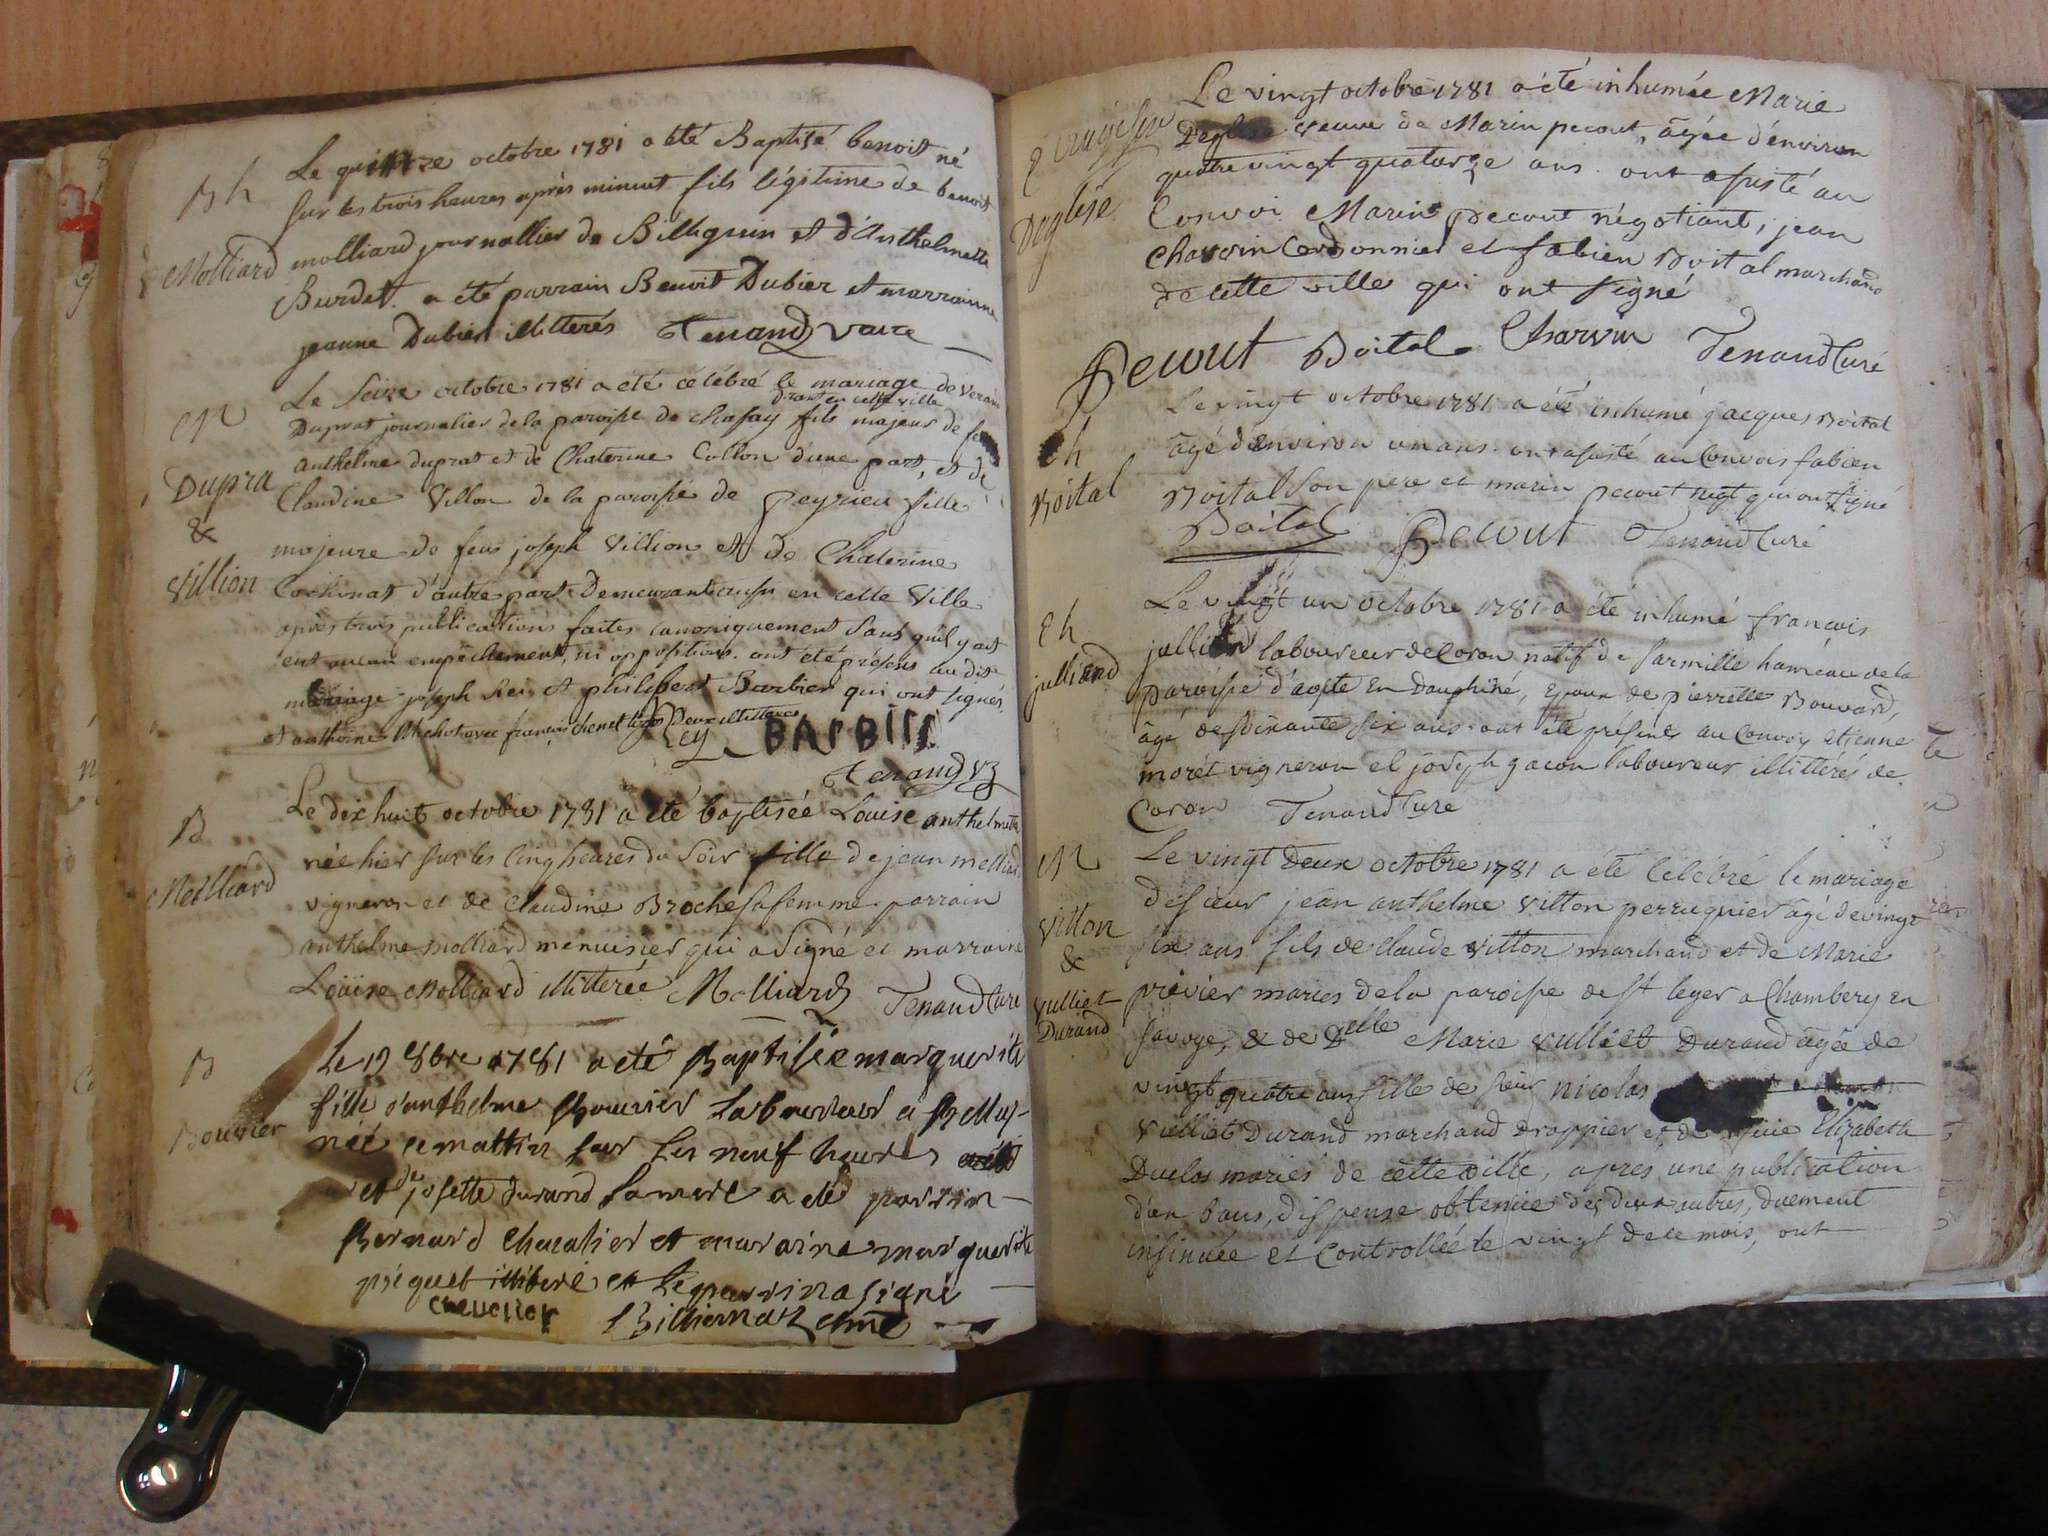 Bh
Molliard
Le quinze octobre 1781 a été Baptisé benoit né
sur les trois heures après minuit fils légitime de benoit
molliard journallier de Billignin et d'Anthelmette
Burdet. a été parrain Benoit Dubier et marrainne
jeanne Dubier illitterés Tenand vaire
M
Dupra
&
Villion
Le seize octobre 1781 a été célébré le mariage de veran
Duprat journalier de la paroisse de chasay fils majeur de feu
anthelme duprat et de Chaterine Collon d'une part, et de
Claudine Villon de la paroisse de peyrieu fille
majeure de feus joseph Villion et de Chaterine
Cochonat d'autre part Demeurant aussi en cette Ville
après trois publications faites canoniquement sans qu'il y ait
eut aucun empêchement, ni opposition. ont été présens au dit
mariage joseph Rei et philibert Barbier qui ont signés
et anthoine Michot avec françois
Rey BARBIER
Tenand
B
Meilliard
Le dix huit octobre 1781 a été baptisée Louise anthelmette
née hier sur les cinq heures du soir fille de jean melliard
vigneron et de Claudine Broche sa femme. parrain
anthelme molliard menuisier qui a signé et marraine
Loüise Molliard illitterée Molliard Tenand Curé
B
Bouvier
Le 19 8bre 1781 a été Baptisée marguerite
fille d'anthelme Bouvier Laboureur a Belley
née ce mattin sur les neuf heures
et de josette durand sa mere a eté parrin
Bernard chavalier et maraine marguerite
piquet illiteré et le parrin a signé
chevelier Billiemaz
Deglise
Le vingt octobre 1781 a été inhumée Marie
Deglise veuve de Marin pecout, âgée d'environ
quatre vingt quatorze ans. ont assisté au
Convoi Marin pecout négotiant, jean
Charvin Cordonnier et fabien Boital marchand
de cette ville qui ont signé
Pecout Boital Charvin Tenand Curé
Sh
Boital
Le vingt octobre 1781 a été inhumé jacques Boital
âgé d'environ un ans. ont assisté au Convois fabien
Boital son pere et marin pecout negt qui ont signé
Boital Pecout Tenand Curé
Sh
julliand
Le vingt un octobre 1781 a été inhumé françois
julliand laboureur de Coron natif de sarmille hameau de la
paroisse d'aoste en dauphiné, Epoux de pierrette Bouvard,
âgé de soixante six ans. ont été présents au Convoy etienne
morêt vigneron et joseph gacon laboureur illittérés de
Coron Tenand Curé
M
Vitton
&
Vulliet
Durand
Le vingt Deux octobre 1781 a été célébré le mariage
de sieur jean anthelme vitton perruquier âgé de vingt
six ans fils de Claude vitton marchand et de Marie
previer mariés de la paroisse de st leger a Chambery en
savoye, & de Dlle Marie vulliet Durand agée de
vingt quatre ans fille de sieur nicolas
vulliet Durand marchand drappier et de Elizabeth
Duclos mariés de cette ville, après une publication
d'un bans, dispense obtenüe des deux autres, duement
insinuée et Controllée le vingt de ce mois, ont